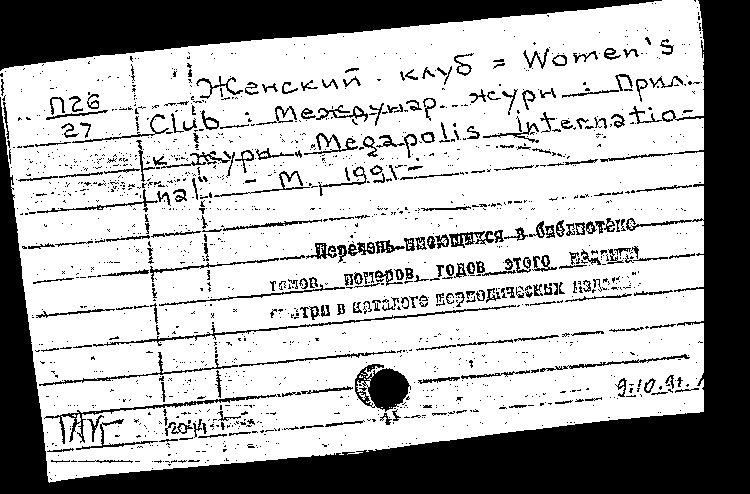 П26
27
Женский клуб = Women's
Club : Междунар. журн : Прил.
к журн. "Megapolis Internatio-
nal". - М., 1991-
Перечень имеющихся в библиотеке
томов, номеров, годов этого издания
смотри в каталоге периодических изданий
9.10.91.
2044